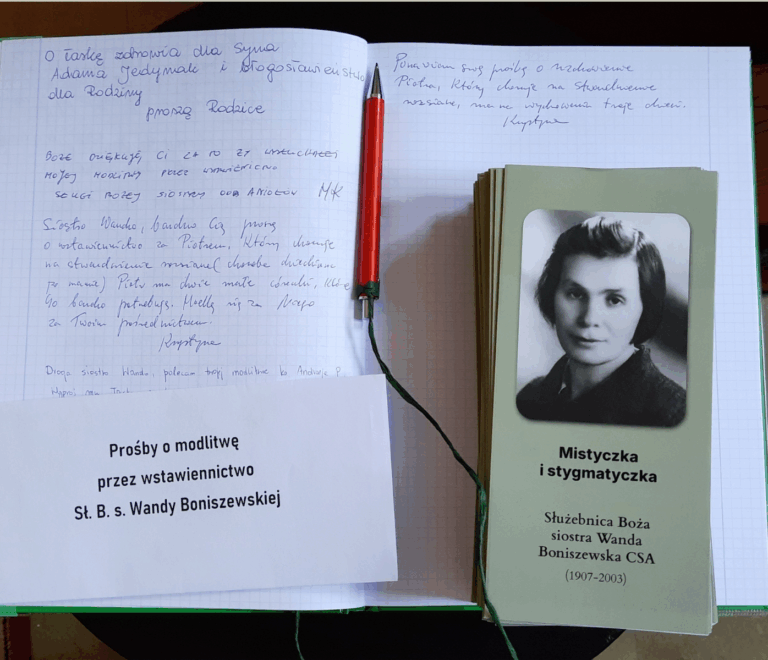 O łaskę zdrowia dla syna
Adama Jedynak i błogosławieństwo
dla Rodziny
proszą Rodzice
BOŻE DZIĘKUJĘ CI ZA TO ŻE WYSŁUCHAŁEŚ
MOJEJ MODLITWY PRZEZ
SŁUGI BOŻEJ SIOSTRY ODA ANIOŁÓW MK
Siostro Wando, bardzo Cię proszę
o wstawiennictwo za Piotrem, który choruje
na stwardnienie rozsiane (choroba dziedziczna
po mamie) Piotr ma dwie małe córeczki, które
Go bardzo potrzebują. Modlę się za Niego
za Twoim pośrednictwem.
Krystyna
Droga siostro Wando, polecam twej modlitwie
Ponawiam swą prośbę o uzdrowienie
Piotra, który choruje na stwardnienie
rozsiane, ma na wychowaniu troje dzieci.
Krystyna
Prośby o modlitwę
przez wstawiennictwo
Sł. B. s. Wandy Boniszewskiej
Mistyczka
i stygmatyczka
Służebnica Boża
siostra Wanda
Boniszewska CSA
(1907-2003)